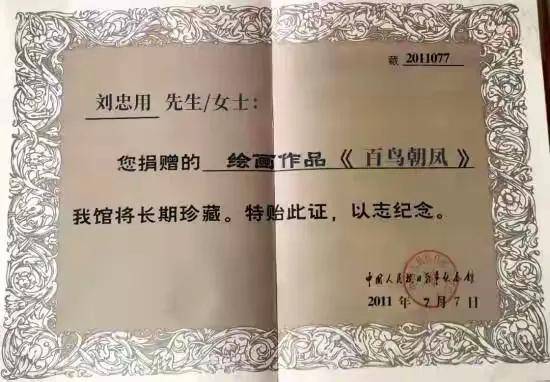 藏 2011077
刘忠用 先生/女士:
您捐赠的 绘画作品《百鸟朝凤》
我馆将长期珍藏。特贻此证，以志纪念。
中国人民抗日战争纪念馆
2011 年 7 月 7 日